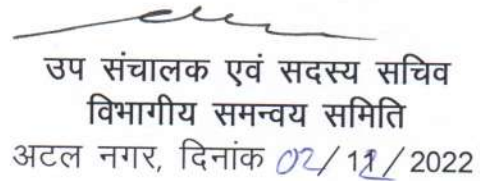 उप संचालक एवं सदस्य सचिव
विभागीय समन्वय समिति
अटल नगर, दिनांक 02/12/2022